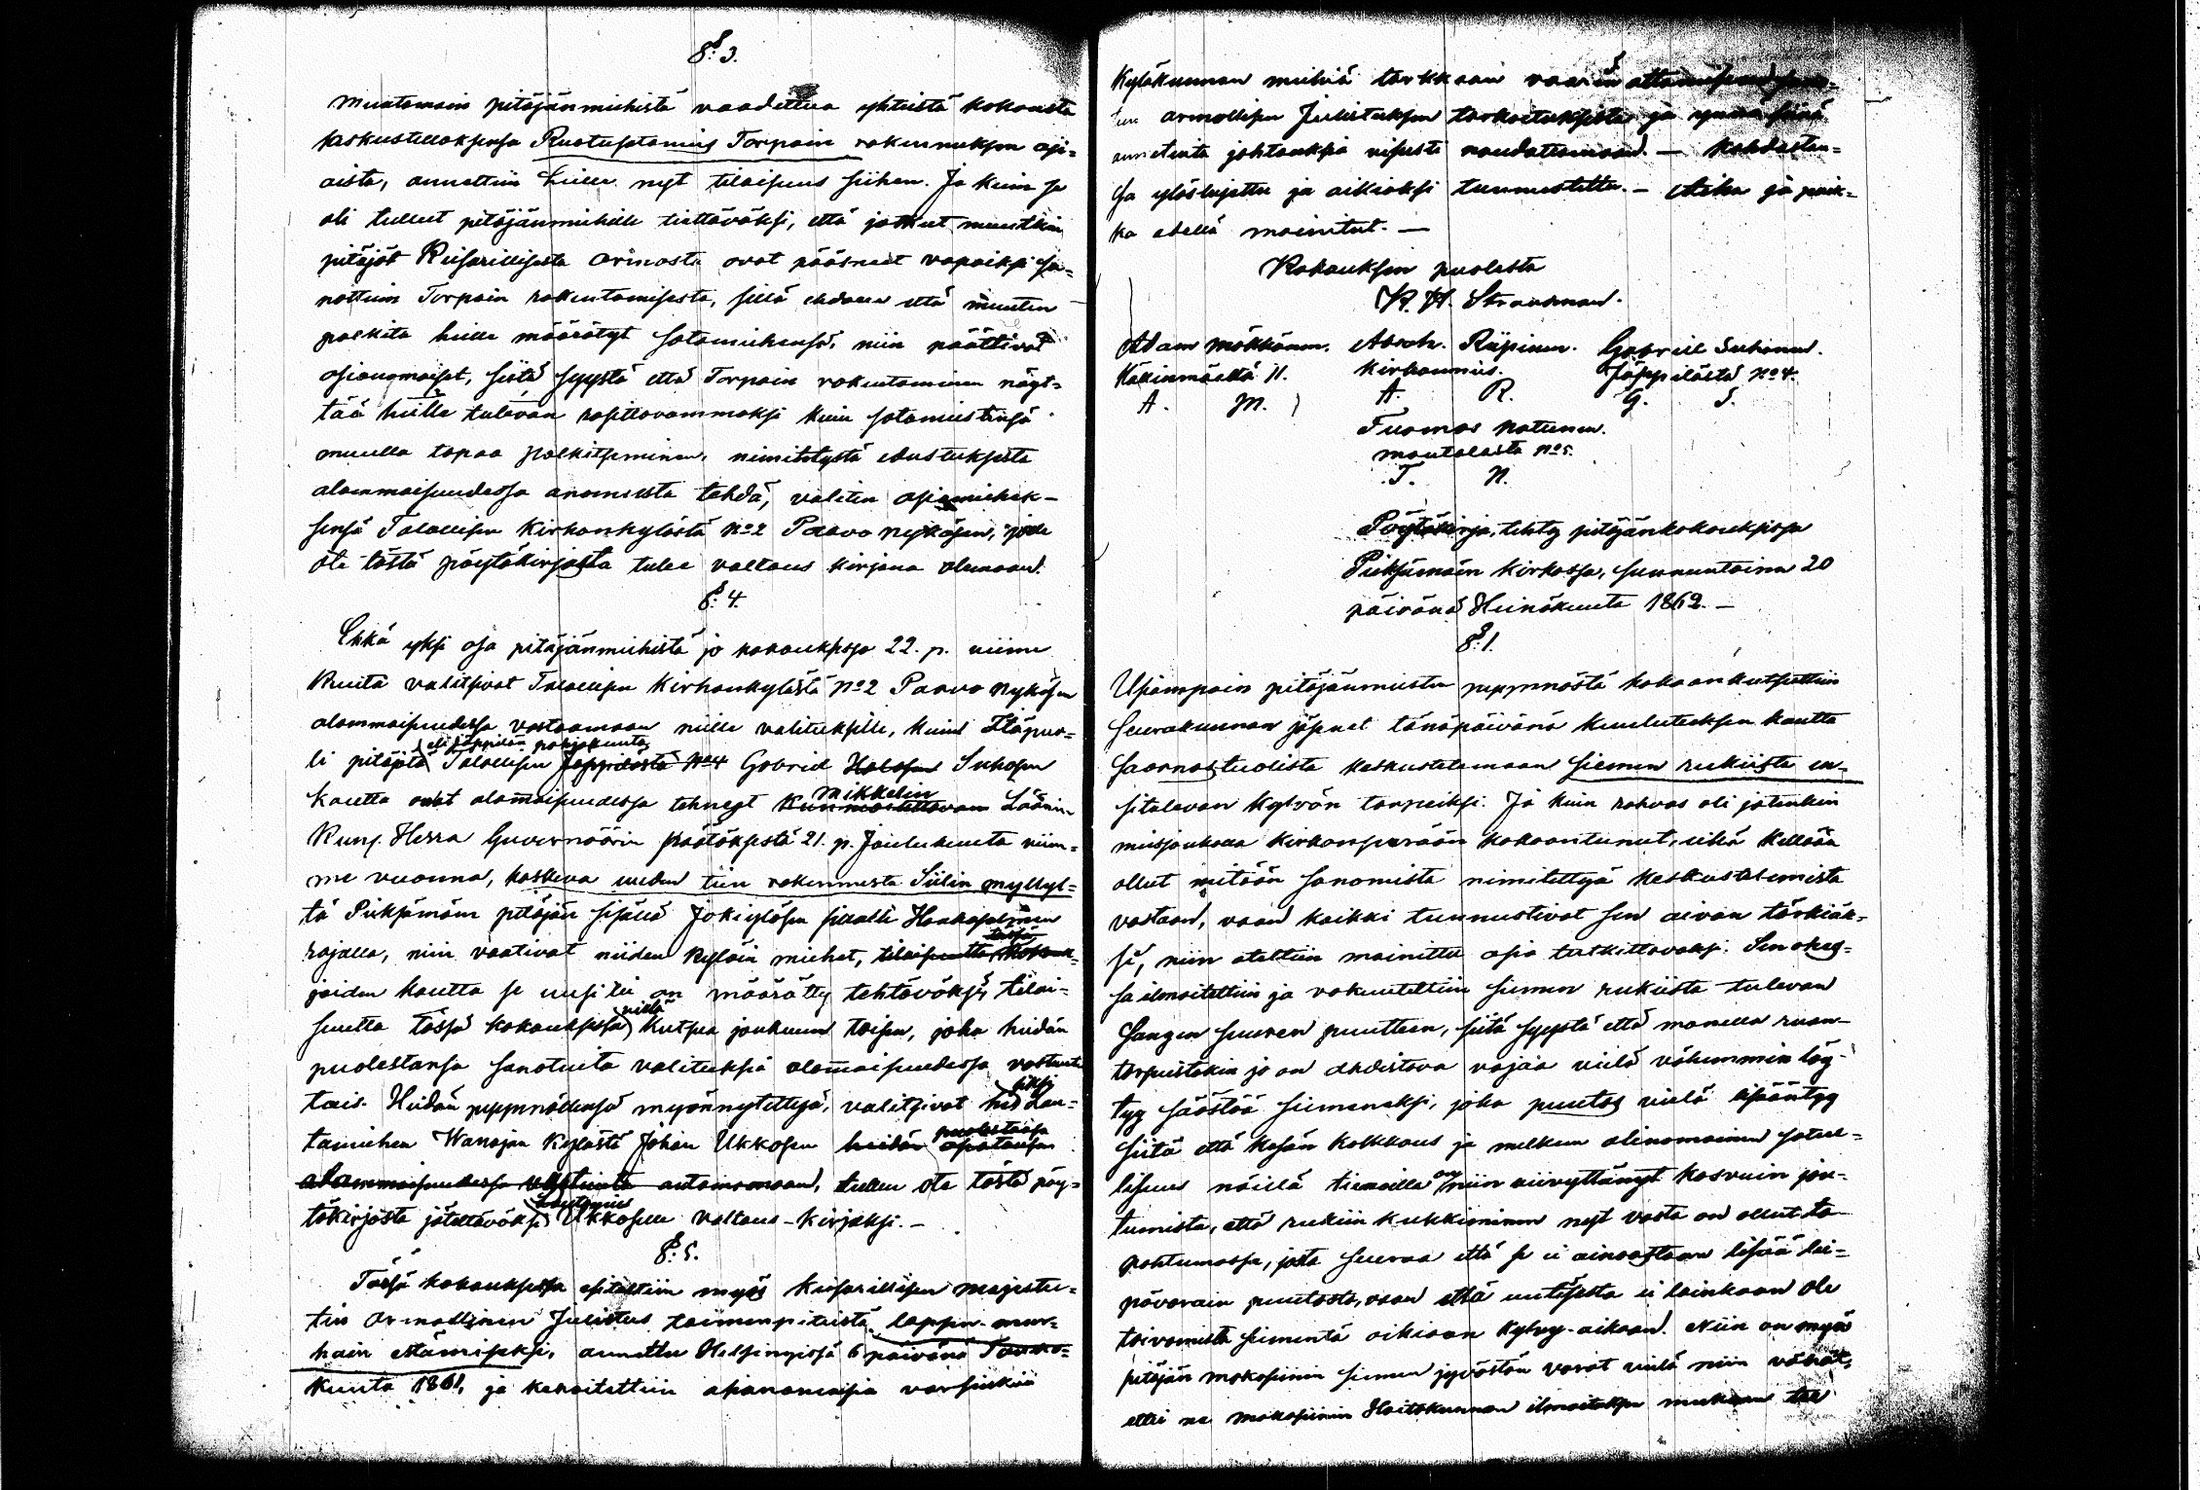 §. 3.
Muutamain pitäjänmiehistä vaadittua yhteistä kokousta
keskustellaksensa Ruotusotamies Torpain rakennuksen asi=
oista, annettiin heille nyt tilaisuus siihen. Ja kuin se
oli tullut pitäjänmiehille tiettäväksi, että jotkut muutkin
pitäjät Keisarillisesta armosta ovat päässeet vapaiksi sa=
nottuin Torpain rakentamisesta, sillä ehdolla että muuten
palkita heille määrätyt sotamiehensä, niin päättivät
asianomaiset, siitä syystä että Torpain rakentaminen näyt=
tää heille tulevan rasittavammaksi kuin sotamiestensä
muulla tapaa palkitseminen, nimitetystä edustuksesta
alammaisuudessa anomusta tehdä, valiten asiamiehek=
sensä Talollisen Kirkonkylästä No 2 Paavo Nykäsen, jolle
ote tästä pöytäkirjasta tulee valtaus kirjana olemaan.
§. 4.
Ehkä yksi osa pitäjänmiehistä jo kokouksessa 22. p. viime
Kuuta valitsivat Talollisen Kirkonkylästä No 2 Paavo Nykäsen
alammaisuudessa vastaamaan niille valituksille, kuin Itäpuo=
eli Jäppilän pohjakuntaa
li pitäjätä Talollisen Jäppilästä No 4 Gabriel Halosen Suhosen
Mikkelin
kautta ovat alamaisuudessa tehneet Läänin
Kuv. Herra Guvernöörin päätöksestä 21. p. Joulukuuta viim=
me vuonna, koskeva uuden tien rakennusta Siilin myllyl=
tä Pieksämäen pitäjän sisällä Jokiylösen sillalle Haukasalmen
rajalla, niin vaativat niiden kyläin miehet, tilaisuutta tässä kokouk=
joiden kautta se uusi tie on määrätty tehtäväksi, tilai=
vielä
suutta tässä kokouksessa kutsua joukuun toisen, joka heidän
puolestansa sanotuita valituksia alamaisuudessa vastuut=
siksi
tais. Heidän pyynnöllensä myönnytettyä, valitsivat he Lau=
puolestansa
tamiehen Vanajan Kylästä Johan Ukkosen heidän asiatansa
alammaisuudessa vastuuta antamomaan, tullen ote tästä pöy=
Lautamies
täkirjasta jätettäväksi Ukkoselle valtaus-kirjaksi.-
§. 5.
Tässä kokouksessa esitettiin myös Keisarillisen Majeste=
tin Armollinen Julistus toimenpiteistä lapsen-mur=
hain estämiseksi, annettu Helsingissä 6 päivänä Touko=
kuuta 1861, ja kehoitettiin asianomaisia varsinkin
Kyläkunnan miehiä tarkkaan vaarin ottamaan
sen armollisen Julistuksen tarkoituksista ja
annetuita johtauksia visusti noudattamaan. - Kohdastan=
sa ylösluettu ja oikiaksi tunnustettu. - Aika ja paik=
ka edellä mainitut. -
Kokouksen puolesta
K. H. Strandman.
Adam Mökkönen. Abrah. Riipinen. Gabriel Suhonen.
Käkinmäeltä 11. Kirkonmies. Jäppilästä No 4.
A. M. A. R. G. S.
Tuomas Natunen.
Montolasta No 5.
T. N.
Pöytäkirja, tehty pitäjänkokouksessa
Pieksämäin Kirkossa, sunnuntaina 20
päivänä Heinäkuuta 1862. -
§. 1.
Usiampain pitäjänmiesten pyynnöstä kokoonkutsuttiin
seurakunnan jäsenet tänäpäivänä kuulutuksen kautta
saarnastuolista keskustelemaan siemen rukiista en=
situlevan kylvön tarpeiksi. Ja kuin rahvas oli jotenkin
miesjoukolla kirkonperään kokoontunut, eikä kellään
ollut mitään sanomista nimitettyä keskustelemista
vastaan, vaan kaikki tunnustivat sen aivan tärkiäk=
si, niin otettiin mainittu asia tutkittavaksi. Sen ohes=
sa ilmoitettiin ja vakuutettiin siemen rukiista tulevan
sangen suuren puutteen, siitä syystä että monella ruan=
tarpeistakin jo on ahdistava vajaa vielä vähemmin löy=
tyy säästöä siemeneksi, joka puutos vielä lisääntyy
siitä että kesän kolkkous ja melkeen alinomainen satel=
on
lisuus näillä tienoilla niin viivyttänyt kasvuin jou=
tumista, että rukiin kukkiminen nyt vasta on ollut ta=
pahtumassa, josta seuraa että se ei ainoastaan lisää lei=
pävarain puutosta, vaan että uutisesta ei lainkaan ole
toivomista siementä oikiaan kylvy-aikaan. Niin on myös
pitäjän makasiinin siemen jyvästön varat vielä niin vähät,
ettei ne makasiinin Hoitokunnan ilmoituksen mukaan tul